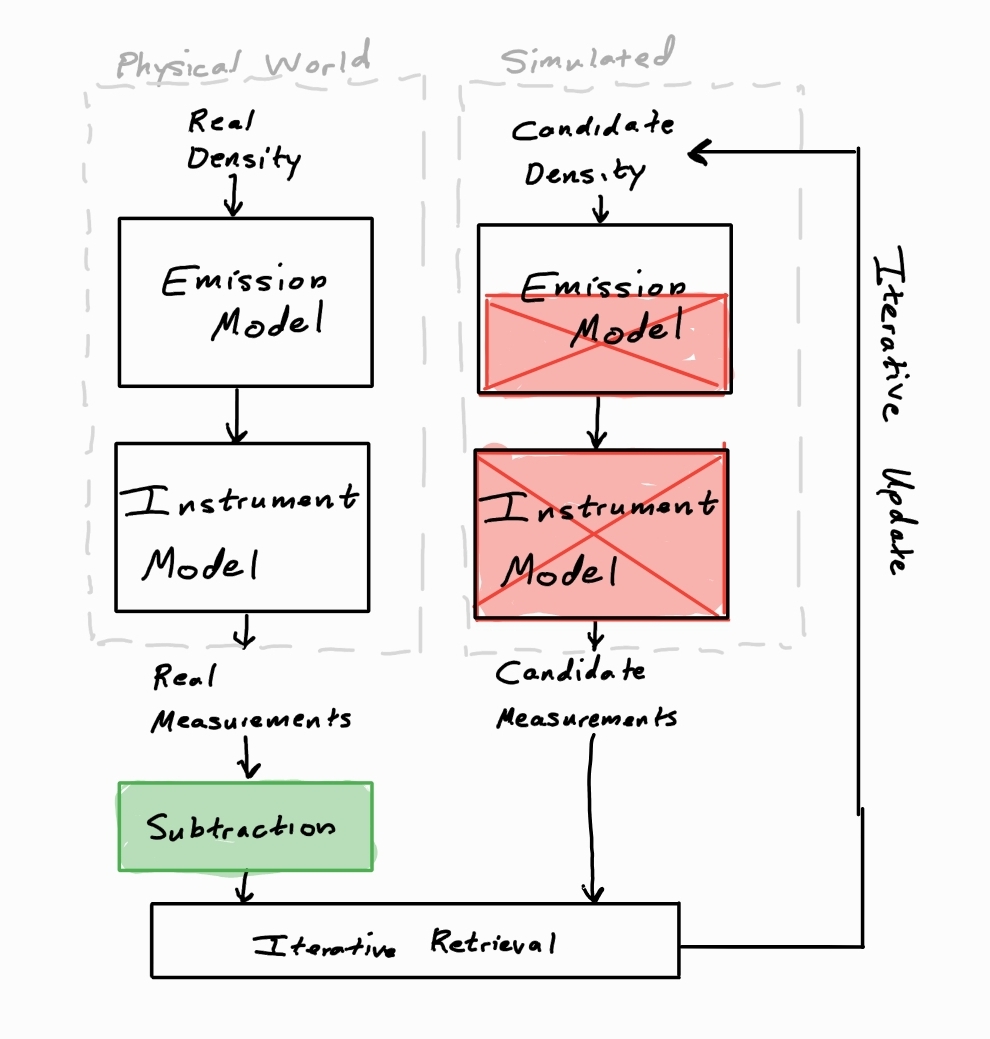 Physical World
Real
Density
Emission
Model
Instrument
Model
Real
Measurements
Subtraction
Simulated
Candidate
Density
Emission
Model
Instrument
Model
Candidate
Measurements
Iterative Retrieval
Iterative Update